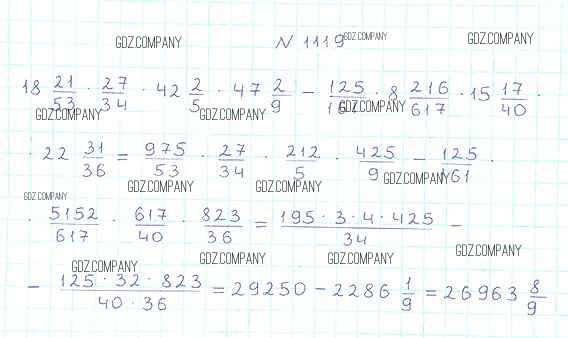 GDZ.COMPANY N 1119 GDZ.COMPANY GDZ.COMPANY
18 21/53 · 27/34 · 42 2/5 · 47 2/9 − 125/161 · 8 216/617 · 15 17/40 ·
GDZ.COMPANY GDZ.COMPANY GDZ.COMPANY
· 22 31/36 = 975/53 · 27/34 · 212/5 · 425/9 − 125/161 ·
GDZ.COMPANY GDZ.COMPANY GDZ.COMPANY GDZ.COMPANY
· 5152/617 · 617/40 · 823/36 = 195 · 3 · 4 · 425/34 −
GDZ.COMPANY GDZ.COMPANY GDZ.COMPANY GDZ.COMPANY
− 125 · 32 · 823/40 · 36 = 29250 − 2286 1/9 = 26963 8/9